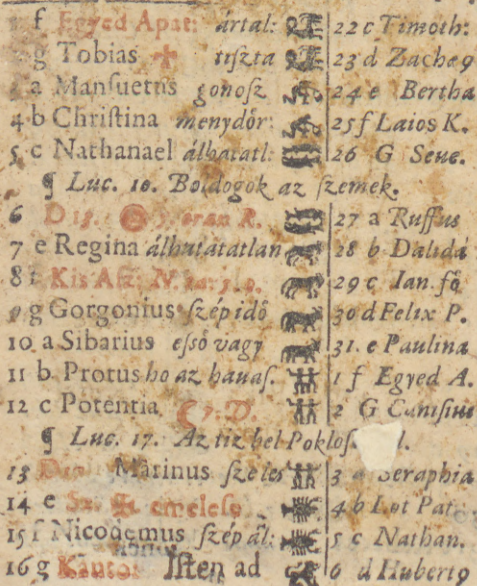 f Egyed Apat: ártal: 22 c Timoth:
g Tobias tiszta 23 d Zache9
a Manſuetus gonoſz 24 e Bertha
4 b Chriſtina menydör: 25 f Laios K.
5 c Nathanael álhatatl: 26 G Seue.
¶ Luc. 10. Boldogok az ſzemek.
6 D 13. R. 27 a Ruffus
7 e Regina álhatátatlan 28 b Dalida
8 f Kis Aſz: N. 29 c Ian. fö
9 g Gorgonius ſzép idö 30 d Felix P.
10 a Sibarius eſsö vagy 31. e Paulina
11 b Protus ho az hauaſ. 1 f Egyed A.
12 c Potentia D. 2 G Caniſius
¶ Luc. 17. Az tiz bel Pokloſ
13 Marinus ſzeles 3 a Seraphia
14 e Sz. emeleſe 4 b Lot Pat.
15 f Nicodemus ſzép ál: 5 c Nathan.
16 g Kantor Iſten ad 6 d Hubert9